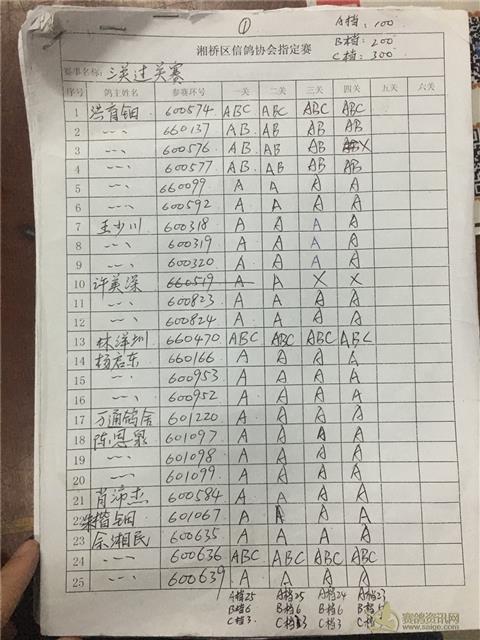 ①
A档:100
B档:200
C档:300
湘桥区信鸽协会指定赛
赛事名称: 三关过关赛
序号 鸽主姓名 参赛环号 一关 二关 三关 四关 五关 六关
1 洪育钿 600574 ABC ABC ABC ABC
2 〃 660137 AB AB AB AB
3 〃 600576 AB AB AB X
4 〃 600577 AB AB AB AB
5 〃 660099 A A A A
6 〃 600592 A A A A
7 王少川 600318 A A A A
8 〃 600319 A A A A
9 〃 600320 A A A A
10 许英深 660519 A A X X
11 〃 600823 A A A A
12 〃 600824 A A A A
13 林洋圳 660470 ABC ABC ABC ABC
14 杨启东 660166 A A A A
15 〃 600953 A A A A
16 〃 600952 A A A A
17 万通鸽舍 601220 A A A A
18 陈恩泉 601097 A A A A
19 〃 601098 A A A A
20 〃 601099 A A A A
21 肖沛杰 600584 A A A A
22 朱楷钿 601067 A A A A
23 余湘民 600635 A A A A
24 〃 600636 ABC ABC ABC ABC
25 〃 600639 A A A A
A档25 A档25 A档24 A档23
B档6 B档6 B档6 B档5
C档3 C档3 C档3 C档3
赛鸽资讯网
www.saige.com